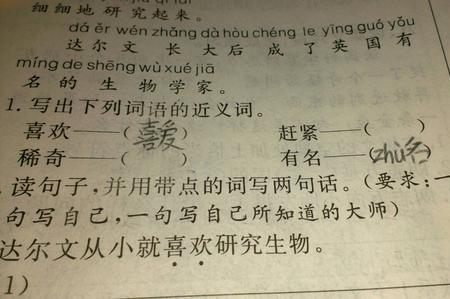 细细地研究起来。
dá ěr wén zhǎng dà hòu chéng le yīng guó yǒu
达尔文长大后成了英国有
míng de shēng wù xué jiā
名的生物学家。
1. 写出下列词语的近义词。
喜欢——(喜爱) 赶紧——( )
稀奇——( ) 有名——(zhù名)
. 读句子,并用带点的词写两句话。(要求:一
句写自己,一句写自己所知道的大师)
达尔文从小就喜欢研究生物。
1)